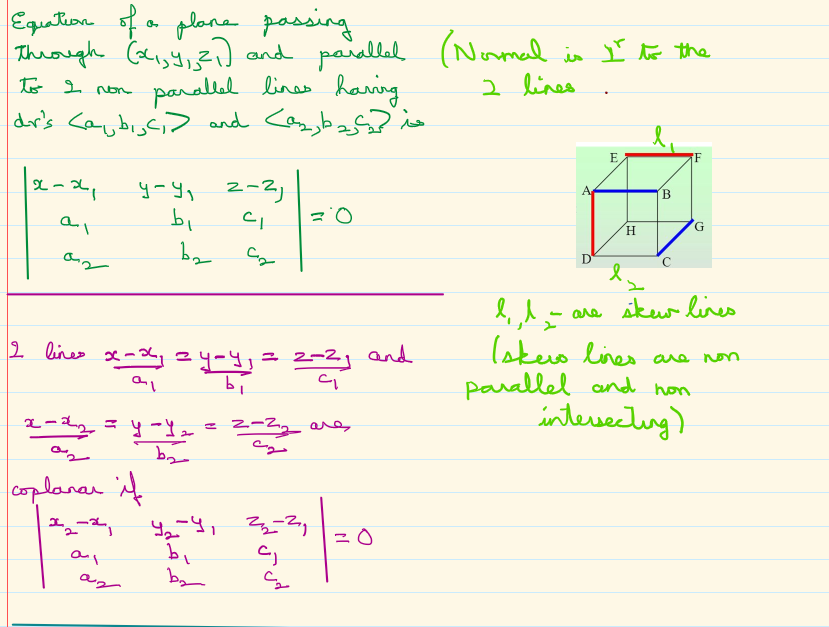 Equation of a plane passing
through (x₁,y₁,z₁) and parallel
to 2 non parallel lines having
dr's <a₁,b₁,c₁> and <a₂,b₂,c₂> is
(Normal is ⊥ʳ to the
2 lines .
| x-x₁ y-y₁ z-z₁ |
| a₁ b₁ c₁ | = 0
| a₂ b₂ c₂ |
l₁
E F
A B
H G
D C
l₂
l₁, l₂ - are skew lines
(skew lines are non
parallel and non
intersecting)
2 lines (x-x₁)/a₁ = (y-y₁)/b₁ = (z-z₁)/c₁ and
(x-x₂)/a₂ = (y-y₂)/b₂ = (z-z₂)/c₂ are
coplanar if
| x₂-x₁ y₂-y₁ z₂-z₁ |
| a₁ b₁ c₁ | = 0
| a₂ b₂ c₂ |